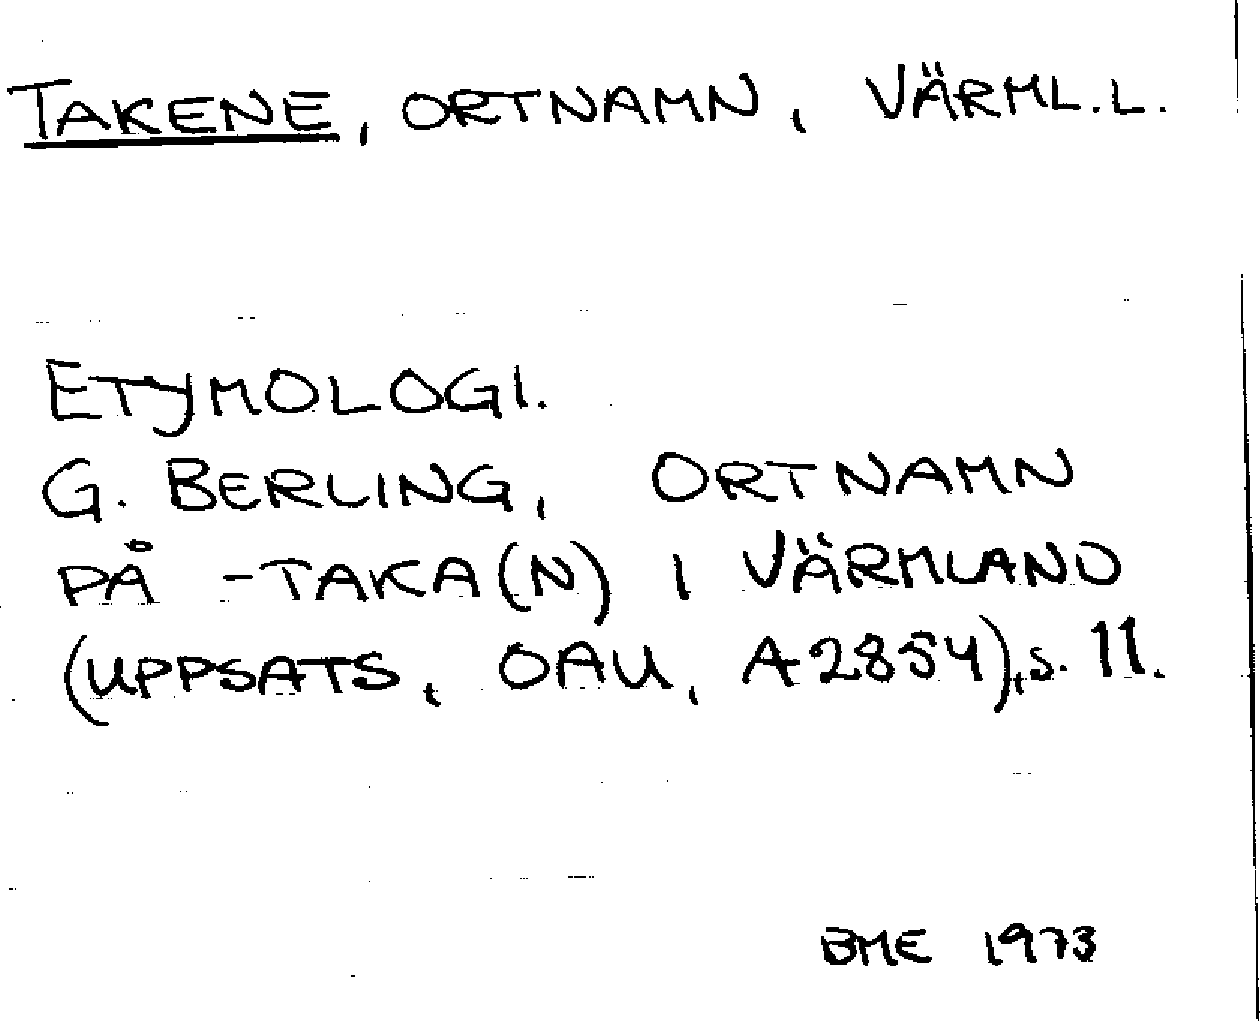 TAKENE, ORTNAMN, VÄRML.L.
ETYMOLOGI.
G. BERLING, ORTNAMN
PÅ -TAKA(N) I VÄRMLAND
(UPPSATS, OAU, A2854), s. 11.
BME 1973